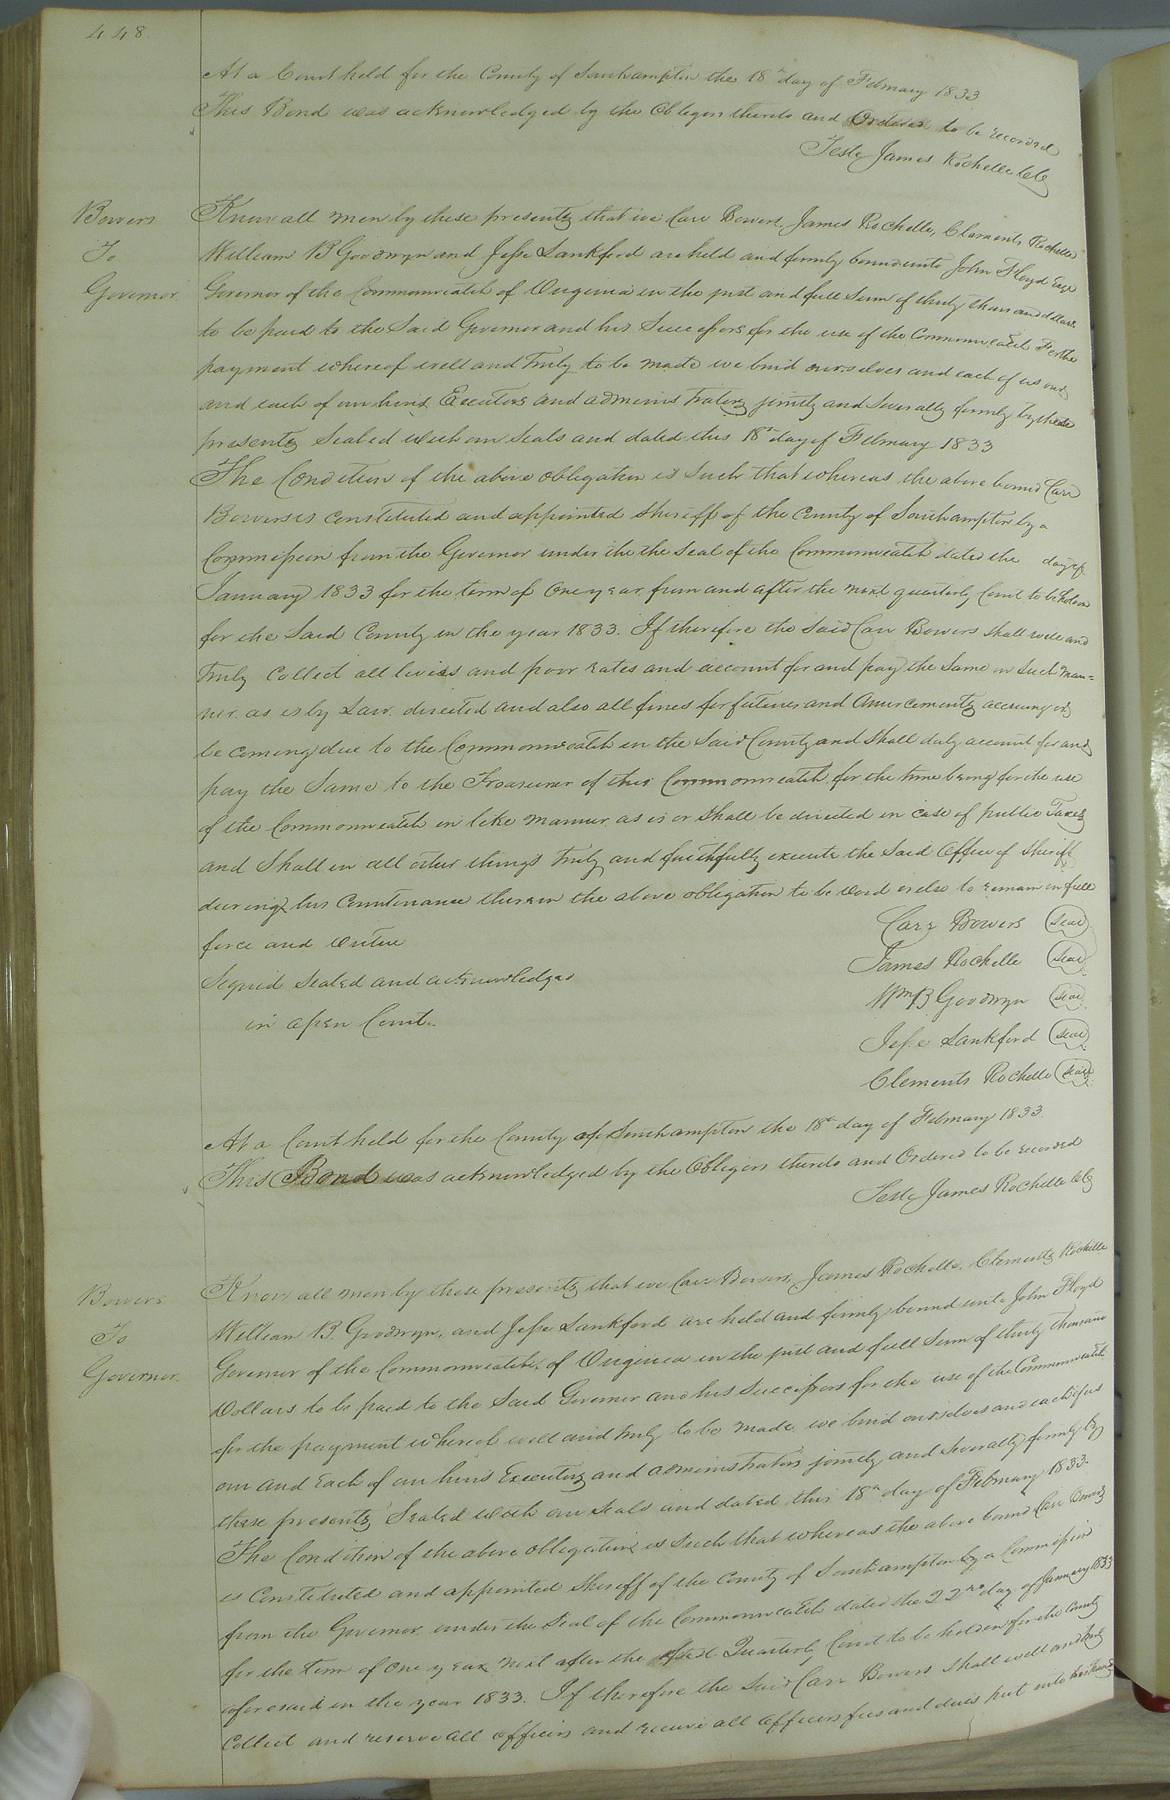 448
At a Court held for the County of Southampton the 18th day of February 1833
This Bond was acknowledged by the Obligors thereto and Ordered to be recorded
Teste James Rochelle Clk
Bowers
To
Governor
Know all men by these presents that we Carr Bowers, James Rochelle, Clements Rochelle
William B Goodwyn and Jesse Lankford are held and firmly bound unto John Floyd Esqr
Governor of the Commonwealth of Virginia in the just and full Sum of thirty thousand dollars
to be paid to the Said Governor and his Successors for the use of the Commonwealth For the
payment whereof well and truly to be made we bind ourselves and each of us our
and each of our heirs Executors and administrators jointly and Severally firmly by these
presents Sealed with our Seals and dated this 18th day of February 1833
The Condition of the above obligation is Such that whereas the above bound Carr
Bowers is constituted and appointed Sheriff of the County of Southampton by a
Commission from the Governor under the the Seal of the Commonwealth dated the day of
January 1833 for the term of One year from and after the next quarterly Court to be holden
for the Said County in the year 1833. If therefore the Said Carr Bowers Shall well and
truly Collect all levies and poor rates and account for and pay the Same in Such man=
ner as is by Law directed and also all fines forfeitures and Amercements accruing or
be coming due to the Commonwealth in the Said County and Shall duly account for and
pay the Same to the Treasurer of this Commonwealth for the time being for the use
of the Commonwealth in like manner as is or Shall be directed in case of public Taxes
and Shall in all other things truly and faithfully execute the Said Office of Sheriff
during his Countinance therein the above obligation to be void or else to remain in full
force and virtue
Signed Sealed and acknowledged
in open Court.
Carr Bowers Seal
James Rochelle Seal
Wm B Goodwyn Seal
Jesse Lankford Seal
Clements Rochelle Seal
At a Court held for the County of Southampton the 18th day of February 1833
This Bond was acknowledged by the Obligors thereto and Ordered to be recorded
Teste James Rochelle Clk
Bowers
To
Governor
Know all men by these presents that we Carr Bowers, James Rochelle, Clements Rochelle
William B. Goodwyn, and Jesse Lankford are held and firmly bound unto John Floyd
Governor of the Commonwealth of Virginia in the just and full Sum of thirty thousand
Dollars to be paid to the Said Governor and his Successors for the use of the Commonwealth
for the payment whereof well and truly to be made we bind ourselves and each of us
our and Each of our heirs Executors and administrators jointly and Severally firmly by
these presents Sealed with our Seals and dated this 18th day of February 1833.
The Condition of the above obligation is Such that whereas the above bound Carr Bowers
is Constituted and appointed Sheriff of the County of Southampton by a Commission
from the Governor under the Seal of the Commonwealth dated the 22nd day of January 1833
for the term of One year next after the Quarterly Court to be holden for the County
aforesaid in the year 1833. If therefore the Said Carr Bowers Shall well and truly
Collect and reserve all officers and receive all officers fees and dues put into his hands